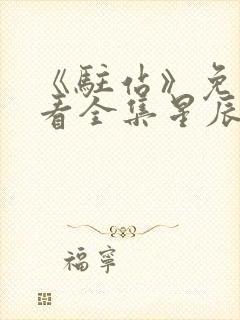 《駐佔》免
看全集星辰
福寧